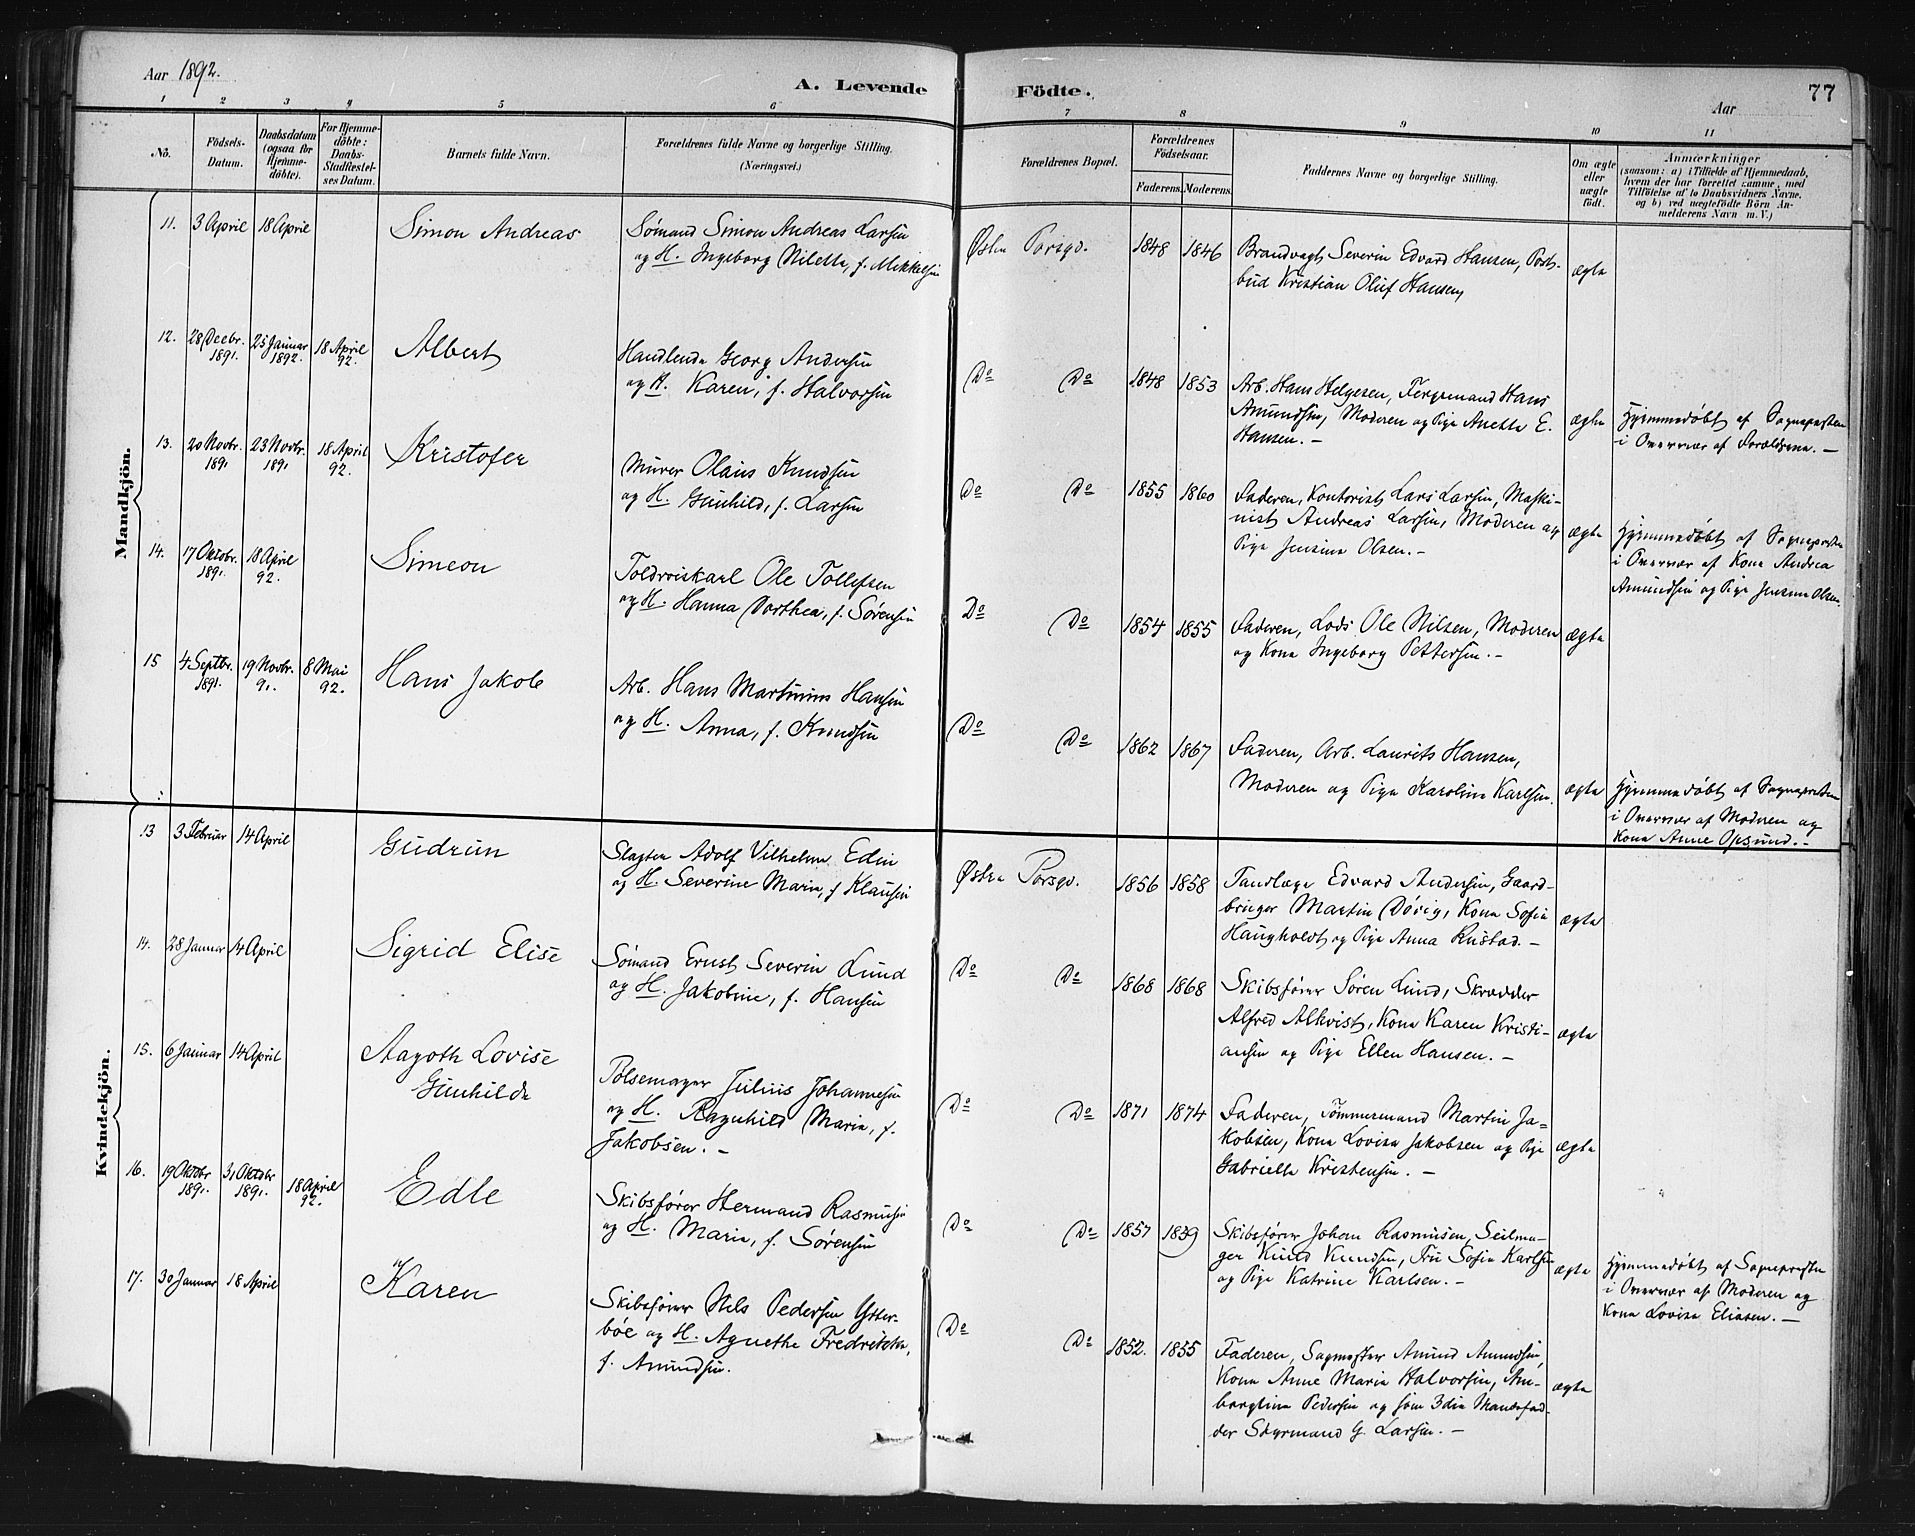 Aar 1892.
A. Levende Födte.
Aar
77
1 2 3 4 5 6 7 8 9 10 11
No.
Födsels-Datum.
Daabsdatum (ogsaa for Hjemme-döbte).
For Hjemme-döbte: Daabs-Stadfestel-ses Datum.
Barnets fulde Navn.
Forældrenes fulde Navne og borgerlige Stilling. (Næringsvei.)
Forældrenes Bopæl.
Forældrenes Födselsaar.
Faderens. Moderens.
Faddernes Navne og borgerlige Stilling.
Om ægte eller uægte födt.
Anmærkninger
(saasom: a) i Tilfælde af Hjemmedaab, hvem der har forrettet samme, med Tilföielse af to Daabsvidners Navne. og b) ved uægtefödte Börn An-melderens Navn m. V.)
Mandkjön.
11. 3 April 18 April Simon Andreas
Sømand Simon Andreas Larsen
og H. Ingeborg Nilette, f. Mikkelsen
Østre Porsgr. 1848 1846
Brandvagt Severin Edvard Hansen, Post-
bud Kristian Oluf Hansen, ægte
12. 28 Decbr. 1891. 25 Januar 1892. 18 April 92. Albert
Handlende Georg Andersen
og H. Karen, f. Halvorsen
Do Do 1848 1853
Arb. Hans Helgesen, Fergemand Hans
Amundsen, Moderen og Pige Anette E.
Hansen. – ægte
Hjemmedøbt af Sognepresten
i Overvær af Forældrene. –
13. 20 Novbr. 1891 23 Novbr. 1891 18 April 92. Kristofer
Murer Olaus Knudsen
og H. Gunhild, f. Larsen
Do Do 1855 1860
Faderen, Kontorist Lars Larsen, Maski-
nist Andreas Larsen, Moderen og
Pige Jensine Olsen. – ægte
Hjemmedøbt af Sognepresten
i Overvær af Kone Andrea
Amundsen og Pige Jensine Olsen.
14. 17 Oktobr. 1891. 18 April 92. Simeon
Toldroiskarl Ole Tollefsen
og H. Hanna Dorthea, f. Sørensen
Do Do 1854 1855
Faderen, Lods Ole Nilsen, Moderen
og Kone Ingeborg Pettersen. – ægte
15 4 Septbr. 1891. 19 Novbr. 91. 8 Mai 92. Hans Jakob
Arb. Hans Martinius Hansen
og H. Anna, f. Knudsen
Do Do 1862 1867
Faderen, Arb. Laurits Hansen,
Moderen og Pige Karoline Karlsen. ægte
Hjemmedøbt af Sognepresten
i Overvær af Moderen og
Kone Anne Opsund. –
Kvindekjön.
13 3 Februar 14 April Gudrun
Slagter Adolf Vilhelm Edin
og H. Severine Marie, f Klausen
Østre Porsgr. 1856 1858
Tandlæge Edvard Andersen, Gaard-
bruger Martin Dørig, Kone Sofie
Haugholdt og Pige Anna Rustad. – ægte
14. 28 Januar 14 April Sigrid Elise
Sømand Ernst Severin Lund
og H. Jakobine, f. Hansen
Do Do 1868 1868
Skibsfører Søren Lund, Skrædder
Alfred Alkvist, Kone Karen Kristi-
ansen og Pige Ellen Hansen. – ægte
15. 6 Januar 14 April Aagoth Lovise
Gunhilde
Pølsemager Julius Johannesen
og H. Ragnhild Marie, f.
Jakobsen. –
Do Do 1871 1874
Faderen, Tømmermand Martin Ja-
kobsen, Kone Lovise Jakobsen og Pige
Gabrielle Kristensen. – ægte
16. 19 Oktobr 1891. 31 Oktobr 1891. 18 April 92. Edle
Skibsfører Hermand Rasmusen
og H. Marie, f. Sørensen
Do Do 1857 1859
Skibsfører Johan Rasmusen, Seilma-
ger Knud Knudsen, Fru Sofie Karlsen
og Pige Katrine Karlsen. – ægte
Hjemmedøbt af Sognepresten
i Overvær af Moderen og
Kone Lovise Eliasen. –
17. 30 Januar 18 April Karen
Skibsfører Nils Pedersen Ytter-
bøe og H. Agnethe Fredrikke,
f. Amundsen.
Do Do 1852. 1855
Faderen, Sagmester Amund Amundsen,
Kone Anne Marie Halvorsen, Am-
borgtine Pedersen og som 3die Mandsfad-
der Styrmand G. Larsen. – ægte